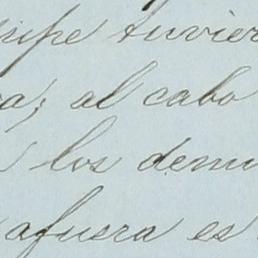 tuvier
a; al cabo
los demu
afuera es